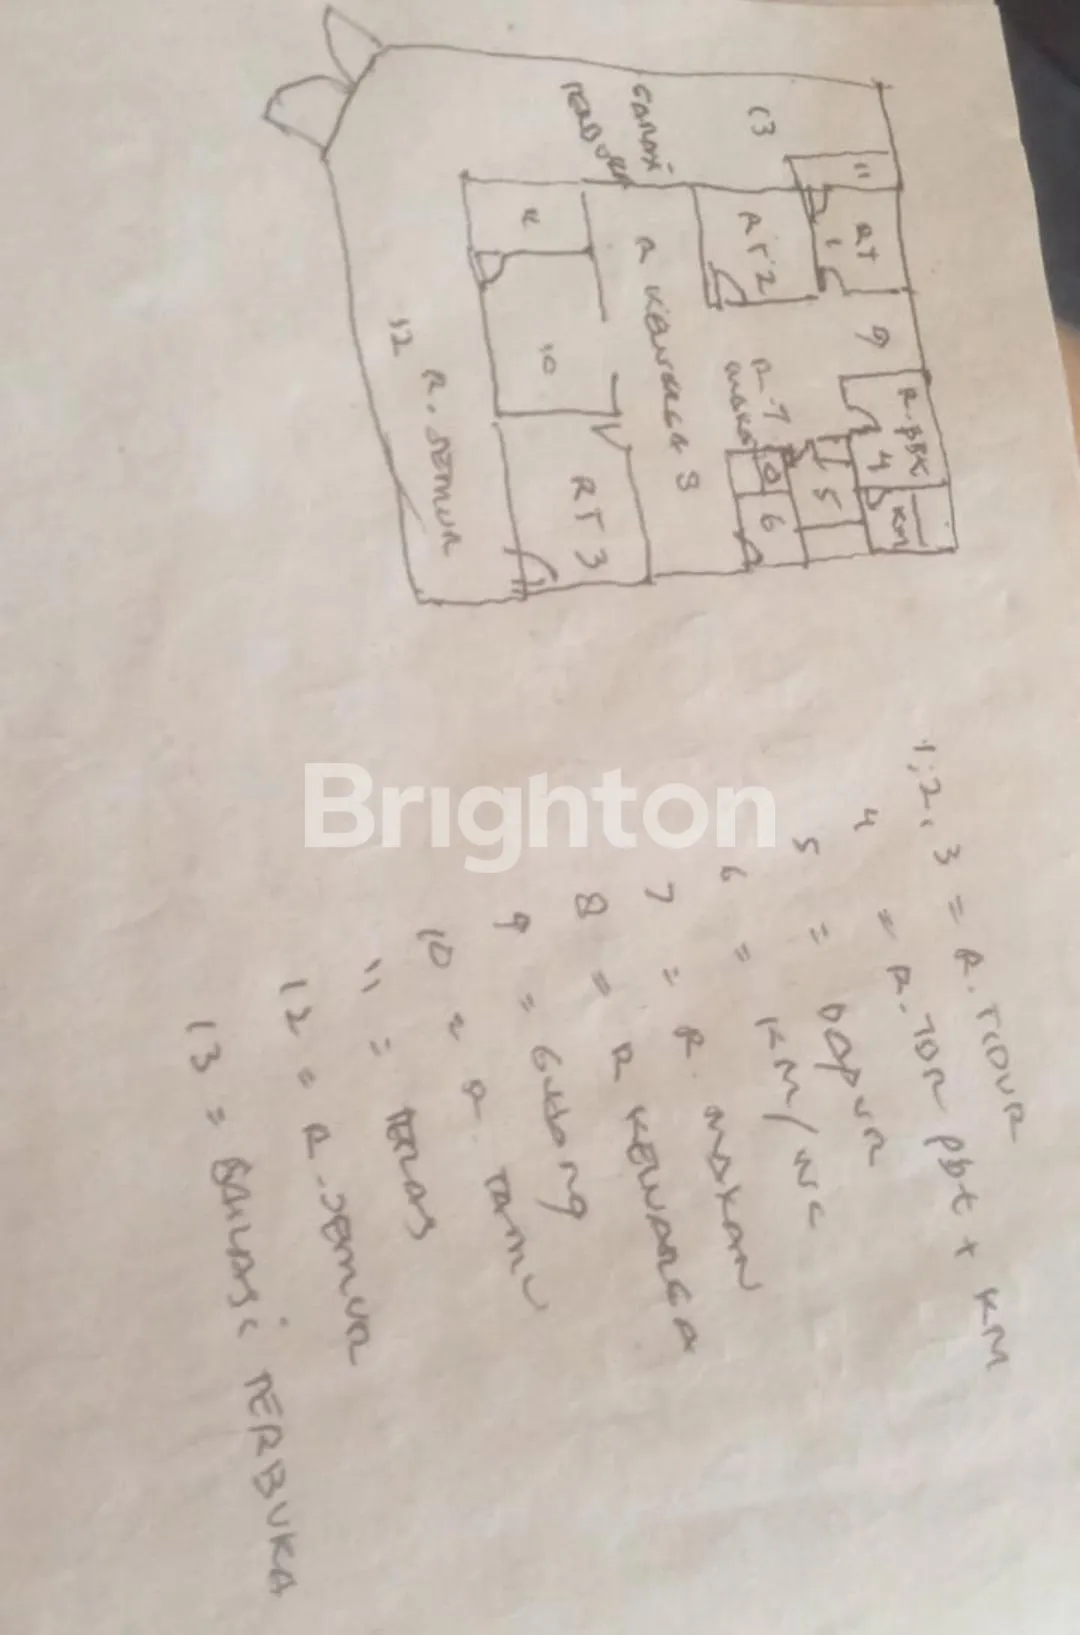 13
GARASI
TERBUKA
11
RT
1
RT 2
9
R KELUARGA 8
11
10
R. 7
MAKAN
R. PBT
4
KM
5
6
RT 3
12 R. JEMUR
1, 2, 3 = R. TIDUR
4 = R. TDR pbt + KM
5 = DAPUR
6 = KM/WC
7 = R. MAKAN
8 = R KELUARGA
9 = Gudang
10 = R. TAMU
11 = TERAS
12 = R. JEMUR
13 = GARASI TERBUKA
Brighton